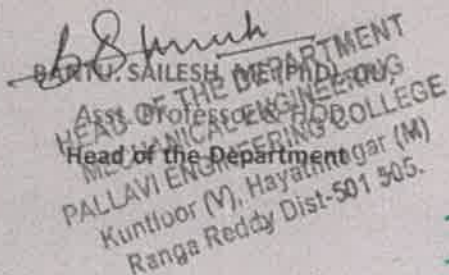 BANTU. SAILESH, ME(PhD), OU,
Asst. Professor & HOD
Head of the Department
HEAD OF THE DEPARTMENT
MECHANICAL ENGINEERING
PALLAVI ENGINEERING COLLEGE
Kuntloor (V), Hayathnagar (M)
Ranga Reddy Dist-501 505.